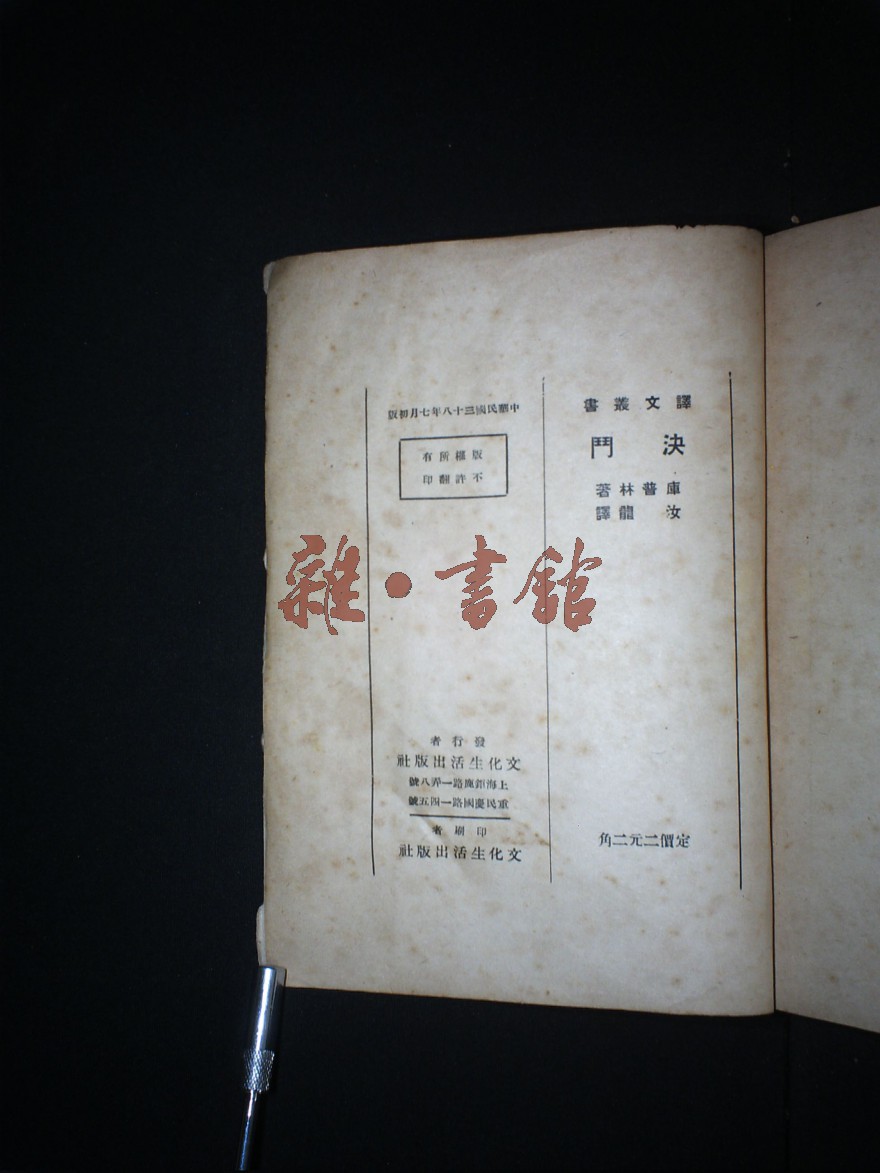 譯文叢書
決鬥
庫普林著
汝龍譯
定價二元二角
中華民國三十八年七月初版
版權所有
不許翻印
發行者
文化生活出版社
上海鉅鹿路一弄八號
重慶民國路一四五號
印刷者
文化生活出版社
雜·書館